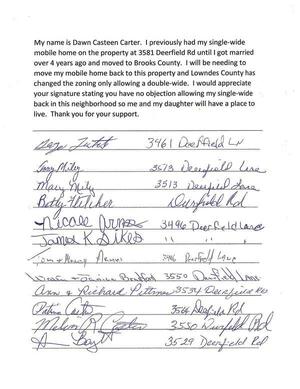 My name is Dawn Casteen Carter. I previously had my single-wide
mobile home on the property at 3581 Deerfield Rd until I got married
over 4 years ago and moved to Brooks County. I will be needing to
move my mobile home back to this property and Lowndes County has
changed the zoning only allowing a double-wide. I would appreciate
your signature stating you have no objection allowing my single-wide
back in this neighborhood so me and my daughter will have a place to
live. Thank you for your support.
3461 Deerfield LN
3513 Deerfield Lane
Mary 3513 Deerfield Lane
Betty Fletcher Deerfield Rd
Nicole 3496 Deerfield Lane
James K Sikes " " "
3496 Deerfield Lane
3550 Deerfield Lane
Ann & Richard Pittman 3534 Deerfield
Deerfield Rd
Melvin R. Casteen 3550 Deerfield Rd
3529 Deerfield Rd